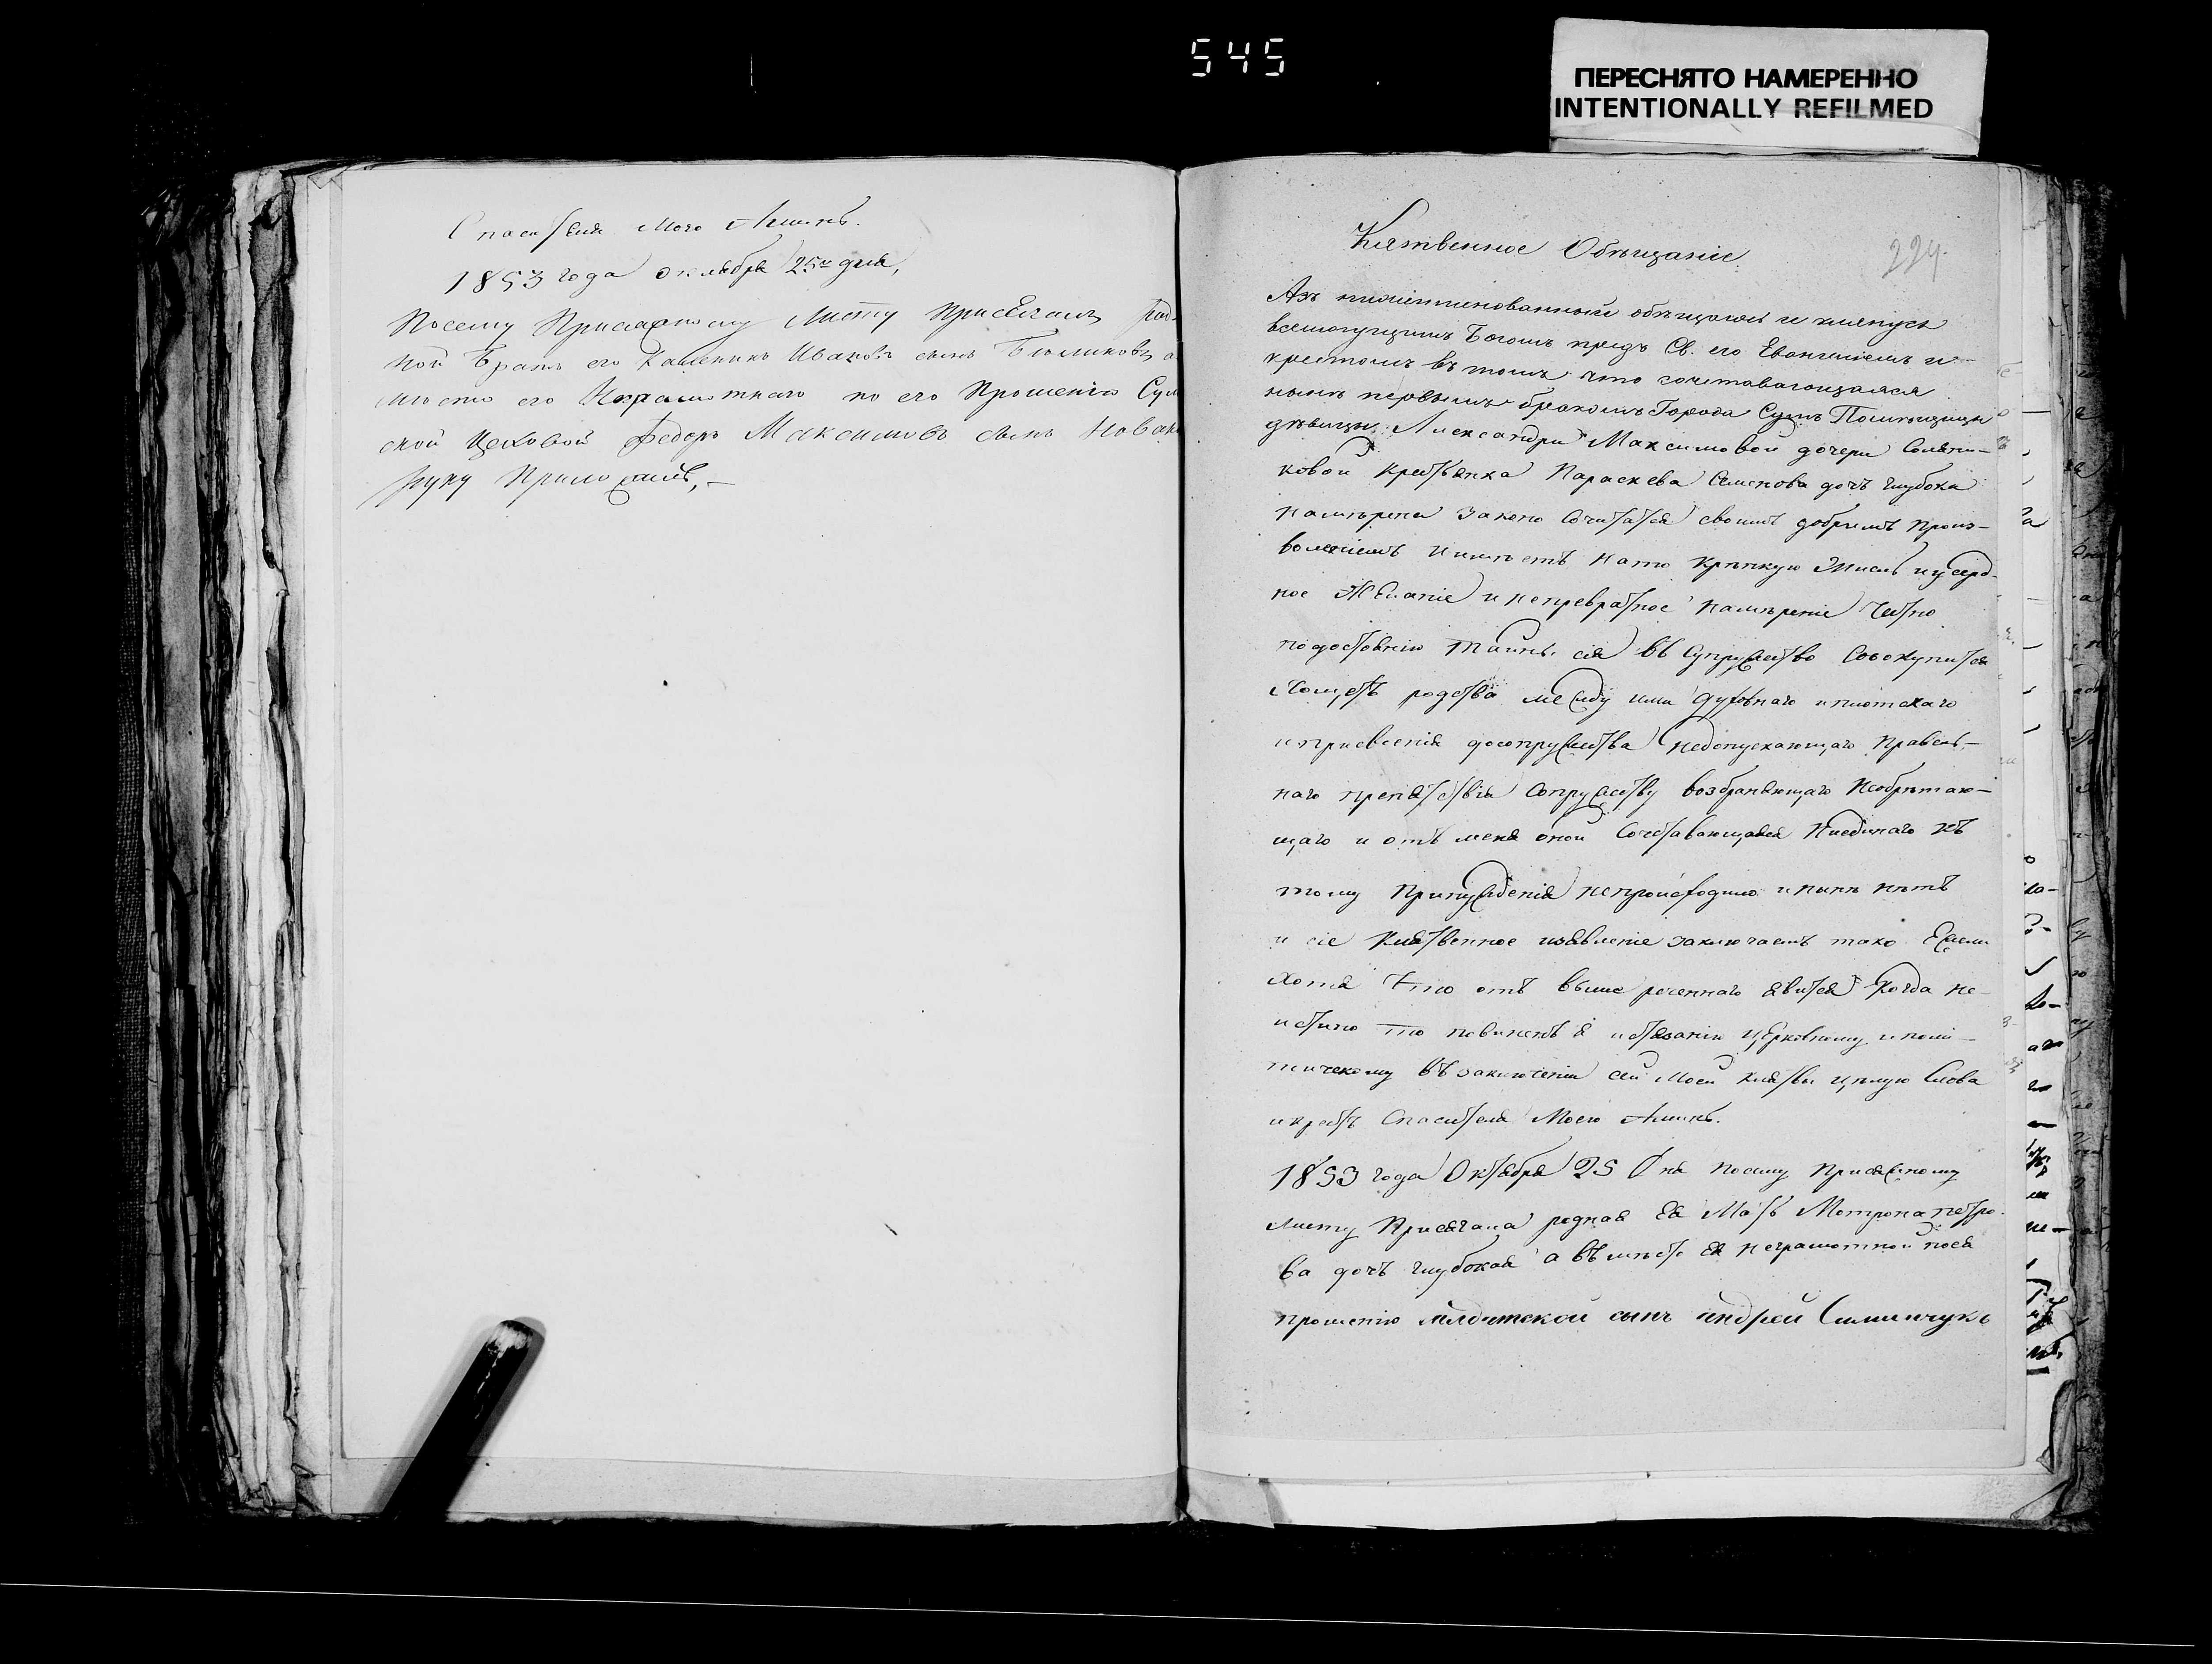 545
ПЕРЕСНЯТО НАМЕРЕННО
INTENTIONALLY REFILMED
Спасителя Моего Аминь.
1853 года октября 25го дня,
Посему Присяжному Листу Присягалъ Род-
ной Братъ его Калиникъ Ивановъ сынъ
место его Неграмотнаго по его Прошенію Сум
ской Цеховой Федоръ Максимовъ сынъ
руку Приложилъ,—
Клятвенное Обѣщаніе
224.
Азъ нижеименованный обѣщаюсь и клянусь
всемогущимъ Богомъ предъ Св. его Евангеліемъ и
крестомъ въ томъ что сочетавающаяся
нынѣ первымъ бракомъ Города Сумъ Помѣщицы
дѣвицы Александры Максимовой дочери
ковой крестьянка Параскева Семенова дочь Глубока
намѣрена законо сочитатся своимъ добрымъ произ-
воленіемъ и имѣетъ на то крѣпкую мысль и усерд-
ное Желаніе и непревратное намѣреніе честно
по достоянію тайны сія въ супружество совокупится
родства между ими духовнаго и плотскаго
и присвоенія до сопружества недопускающаго правель-
наго препятствія сопружеству возбраняющаго необрѣтаю-
щаго и отъ меня оной сочетавающаяся ниединаго къ
тому принужденія непроисходило и нынѣ нѣтъ
и сіе Клятвенное изъявленіе заключаетъ тако Ежели
хотя что отъ выше реченнаго явится когда не-
истино то повиненъ я истязанію церковному и поли-
тическому въ заключеніи сей моей клятвы цѣлую слова
и крестъ Спасителя Моего Аминь.
1853 года Октября 25 дня посему присяжному
листу Присягала родная ея Мать Мотрона Петро-
ва дочь Глубокая а въ мѣсто ея неграмотной по ея
прошенію сынъ андрей